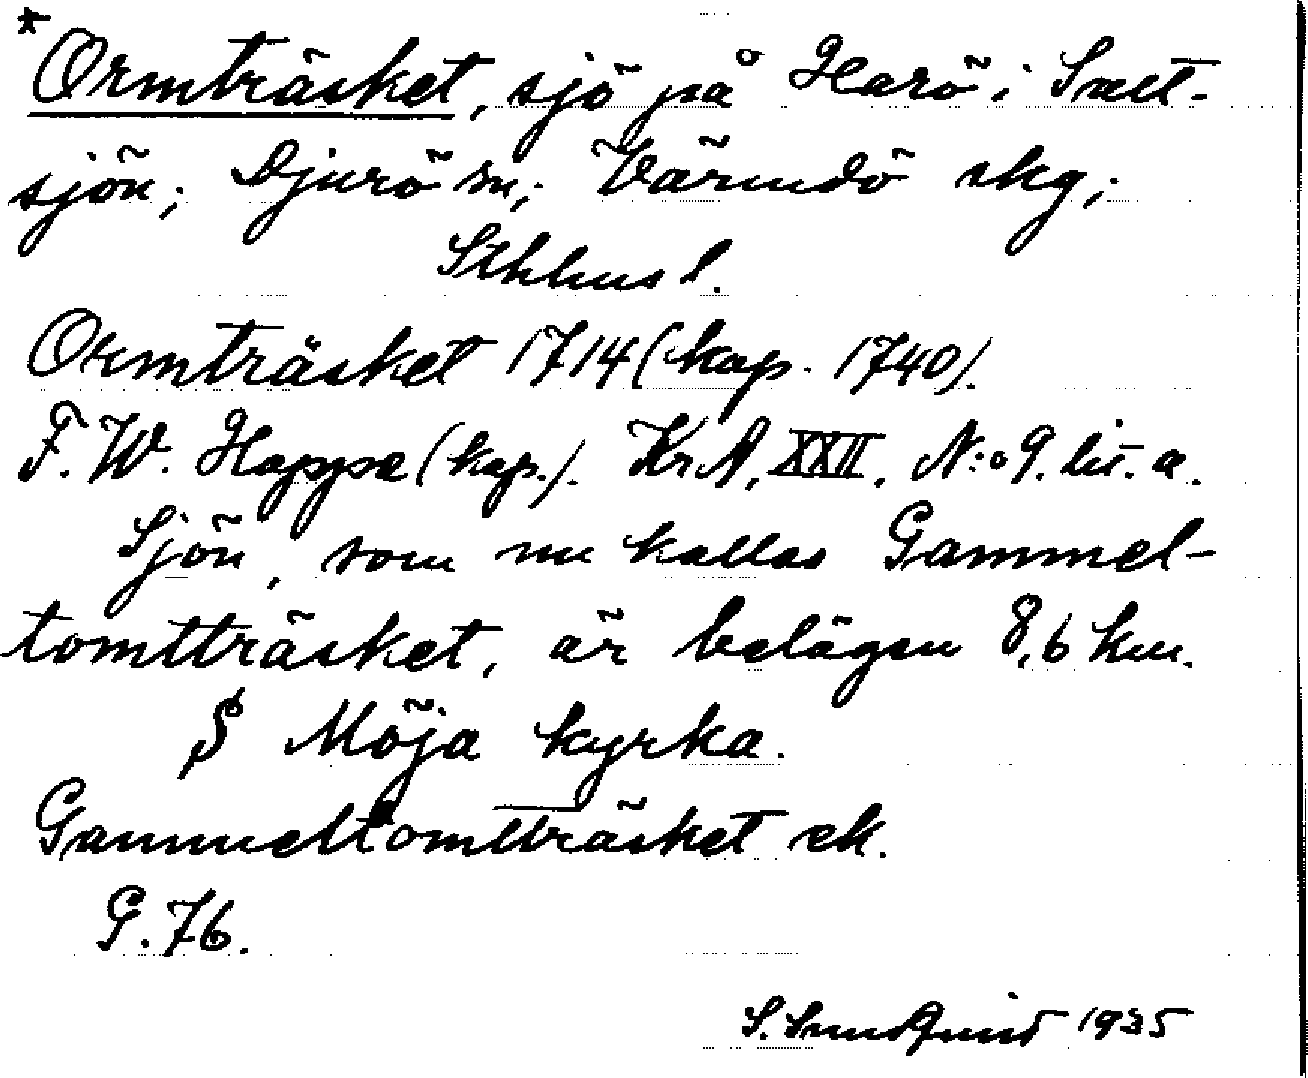 *Ormträsket, sjö på Harö i Salt-
sjön; Djurö sn; Värmdö skg;
Sthlms l.
Ormträsket 1714 (kop. 1740).
F. W. Hoppe (kop.). KrA, XXII, N:o 9. lit. a.
Sjön, som nu kallas Gammel-
tomtträsket, är belägen 8,6 km.
S Möja kyrka.
Gammeltomtträsket ek.
G. 76.
S. Sundquist 1935